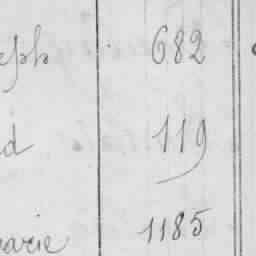 eph 682
d 119
marie 1185